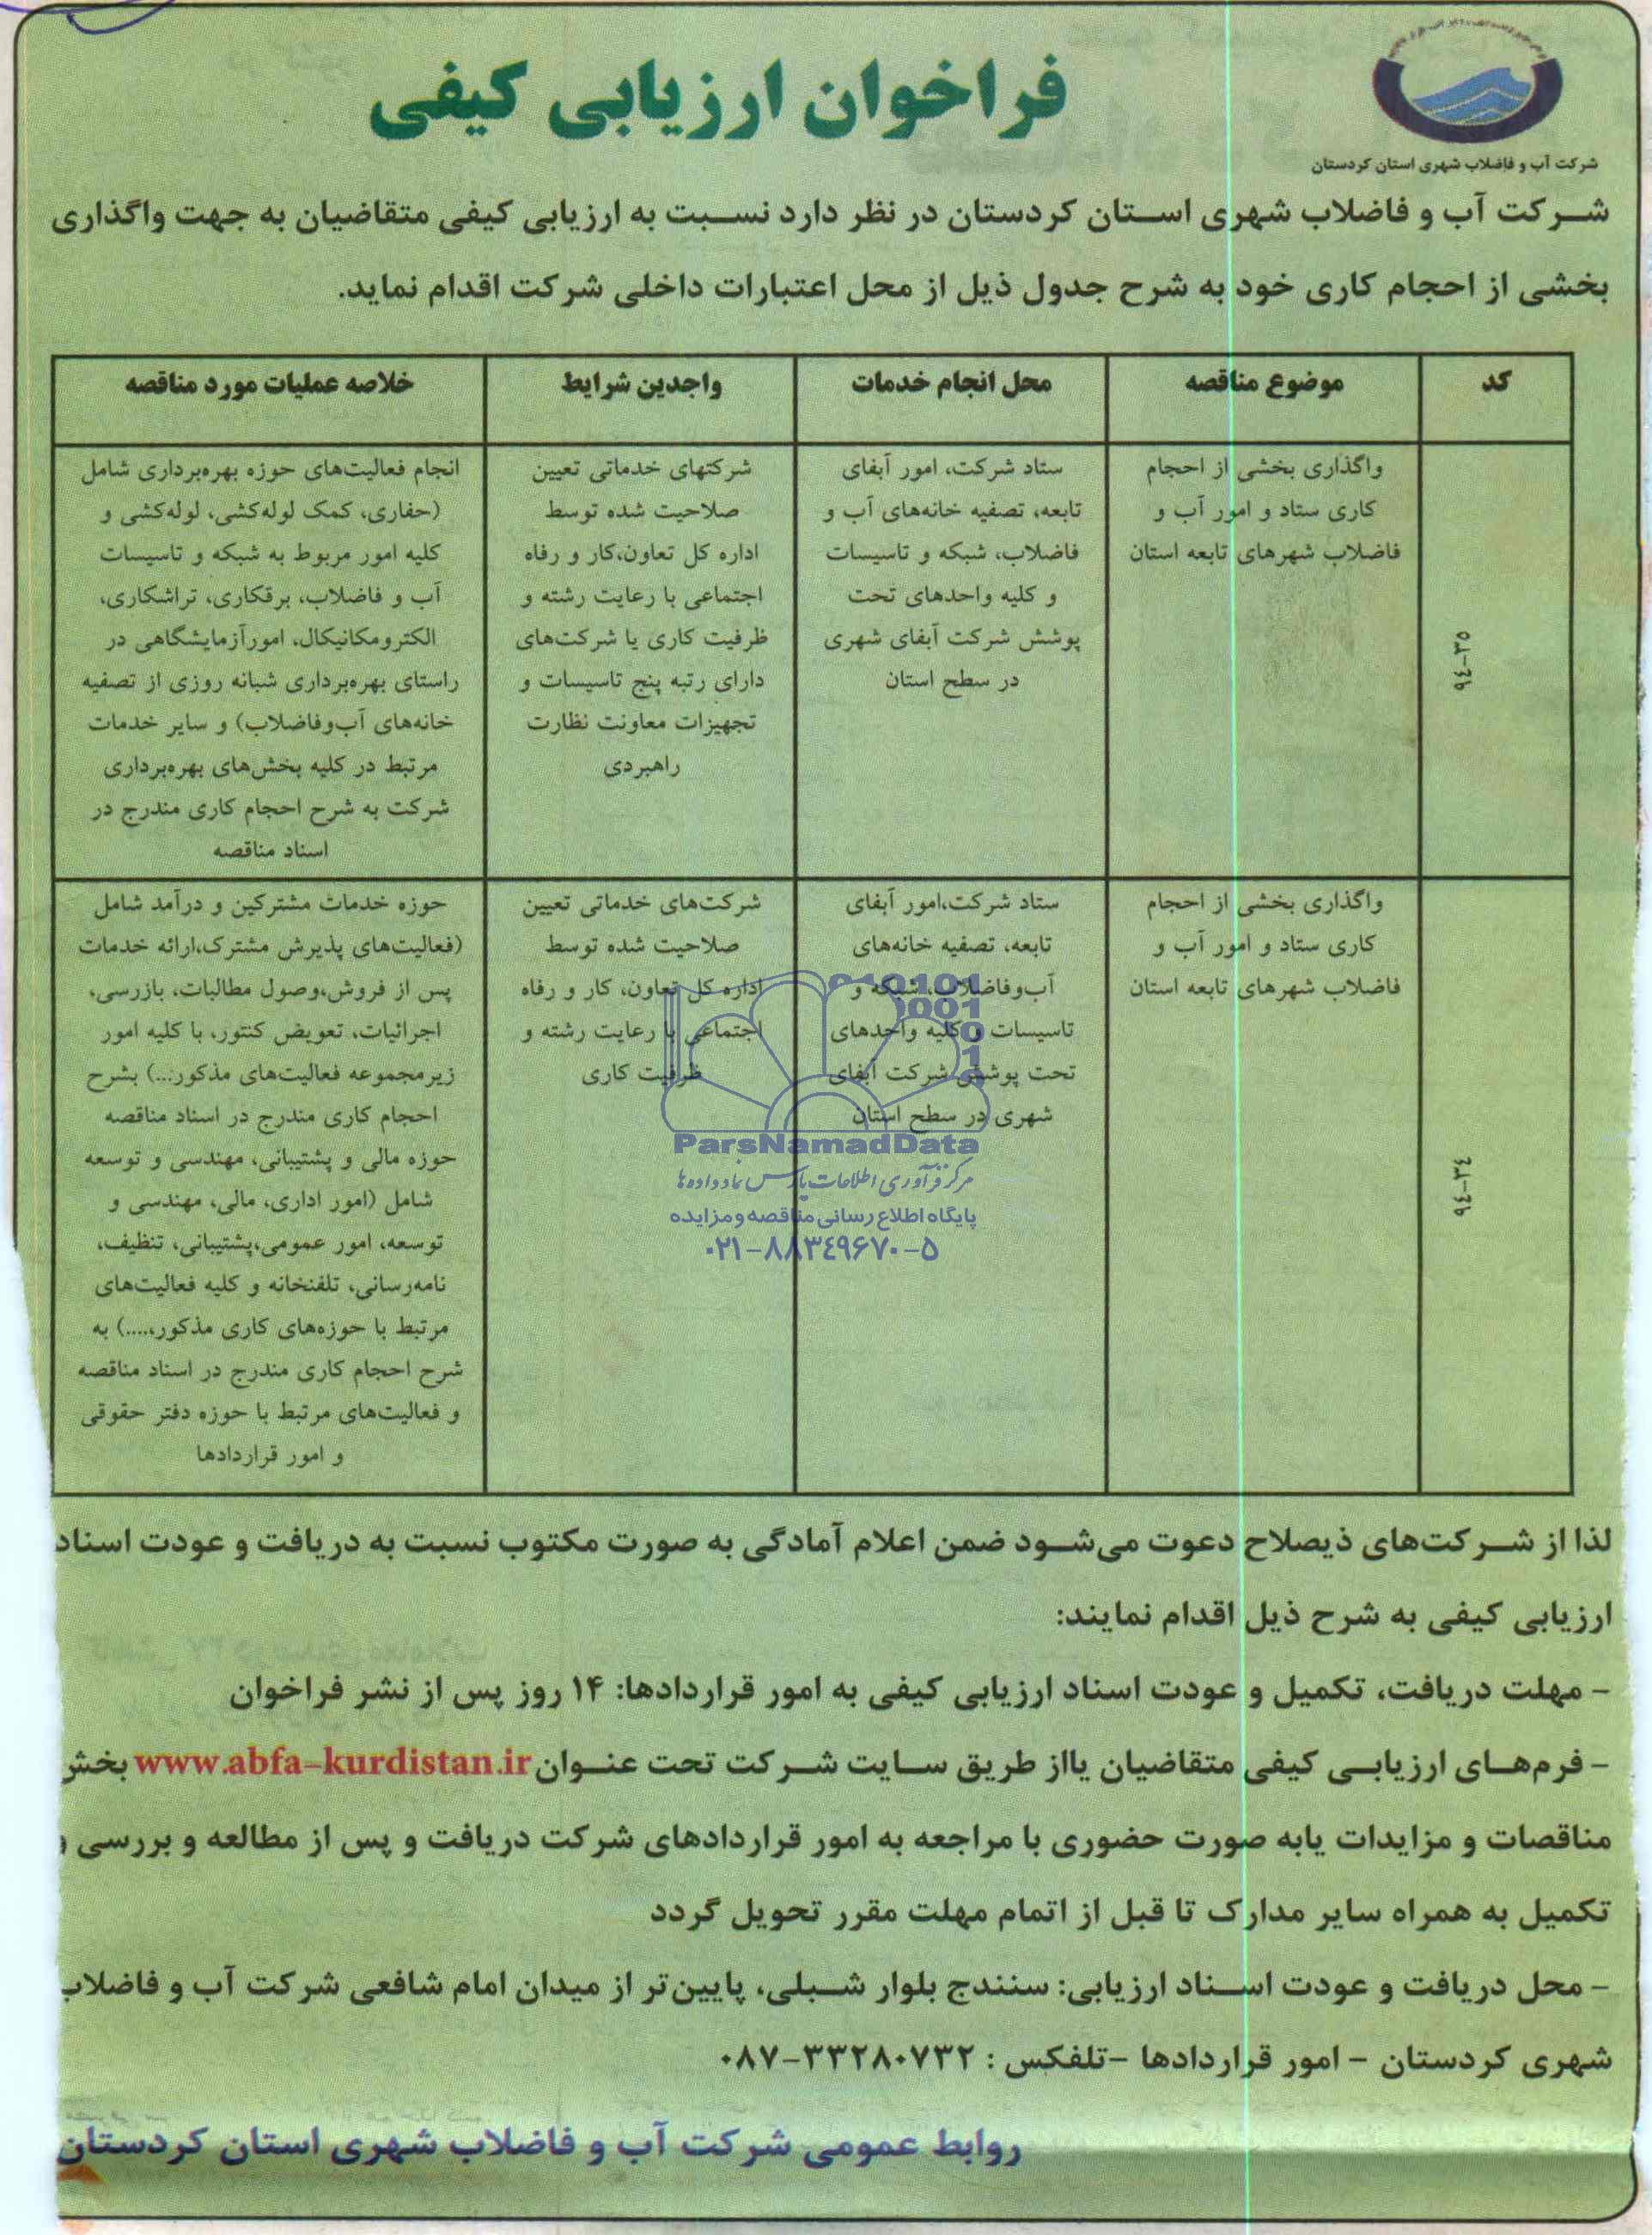 فراخوان ارزیابی کیفی
شرکت آب و فاضلاب شهری استان کردستان
شرکت آب و فاضلاب شهری استان کردستان در نظر دارد نسبت به ارزیابی کیفی متقاضیان به جهت واگذاری
بخشی از احجام کاری خود به شرح جدول ذیل از محل اعتبارات داخلی شرکت اقدام نماید.
کد
موضوع مناقصه
محل انجام خدمات
واجدین شرایط
خلاصه عملیات مورد مناقصه
۹٤-۳۵
واگذاری بخشی از احجام
کاری ستاد و امور آب و
فاضلاب شهرهای تابعه استان
ستاد شرکت، امور آبفای
تابعه، تصفیه خانه‌های آب و
فاضلاب، شبکه و تاسیسات
و کلیه واحدهای تحت
پوشش شرکت آبفای شهری
در سطح استان
شرکتهای خدماتی تعیین
صلاحیت شده توسط
اداره کل تعاون،کار و رفاه
اجتماعی با رعایت رشته و
ظرفیت کاری یا شرکت‌های
دارای رتبه پنج تاسیسات و
تجهیزات معاونت نظارت
راهبردی
انجام فعالیت‌های حوزه بهره‌برداری شامل
(حفاری، کمک لوله‌کشی، لوله‌کشی و
کلیه امور مربوط به شبکه و تاسیسات
آب و فاضلاب، برقکاری، تراشکاری،
الکترومکانیکال، امورآزمایشگاهی در
راستای بهره‌برداری شبانه روزی از تصفیه
خانه‌های آب‌وفاضلاب) و سایر خدمات
مرتبط در کلیه بخش‌های بهره‌برداری
شرکت به شرح احجام کاری مندرج در
اسناد مناقصه
۹٤-۳٤
واگذاری بخشی از احجام
کاری ستاد و امور آب و
فاضلاب شهرهای تابعه استان
ستاد شرکت،امور آبفای
تابعه، تصفیه خانه‌های
آب‌وفاضلاب، شبکه و
تاسیسات و کلیه واحدهای
تحت پوشش شرکت آبفای
شهری در سطح استان
شرکت‌های خدماتی تعیین
صلاحیت شده توسط
اداره کل تعاون، کار و رفاه
اجتماعی با رعایت رشته و
ظرفیت کاری
حوزه خدمات مشترکین و درآمد شامل
(فعالیت‌های پذیرش مشترک،ارائه خدمات
پس از فروش،وصول مطالبات، بازرسی،
اجرائیات، تعویض کنتور، با کلیه امور
زیرمجموعه فعالیت‌های مذکور...) بشرح
احجام کاری مندرج در اسناد مناقصه
حوزه مالی و پشتیبانی، مهندسی و توسعه
شامل (امور اداری، مالی، مهندسی و
توسعه، امور عمومی،پشتیبانی، تنظیف،
نامه‌رسانی، تلفنخانه و کلیه فعالیت‌های
مرتبط با حوزه‌های کاری مذکور،....) به
شرح احجام کاری مندرج در اسناد مناقصه
و فعالیت‌های مرتبط با حوزه دفتر حقوقی
و امور قراردادها
ParsNamadData
مرکز فرآوری اطلاعات پارس نماد داده ها
پایگاه اطلاع رسانی مناقصه و مزایده
۰۲۱-۸۸۳٤۹۶۷۰-۵
لذا از شرکت‌های ذیصلاح دعوت می‌شود ضمن اعلام آمادگی به صورت مکتوب نسبت به دریافت و عودت اسناد
ارزیابی کیفی به شرح ذیل اقدام نمایند:
- مهلت دریافت، تکمیل و عودت اسناد ارزیابی کیفی به امور قراردادها: ۱۴ روز پس از نشر فراخوان
- فرم‌های ارزیابی کیفی متقاضیان یااز طریق سایت شرکت تحت عنوان www.abfa-kurdistan.ir بخش
مناقصات و مزایدات یابه صورت حضوری با مراجعه به امور قراردادهای شرکت دریافت و پس از مطالعه و بررسی و
تکمیل به همراه سایر مدارک تا قبل از اتمام مهلت مقرر تحویل گردد
- محل دریافت و عودت اسناد ارزیابی: سنندج بلوار شبلی، پایین‌تر از میدان امام شافعی شرکت آب و فاضلاب
شهری کردستان - امور قراردادها -تلفکس : ۳۳۲۸۰۷۳۲-۰۸۷
روابط عمومی شرکت آب و فاضلاب شهری استان کردستان